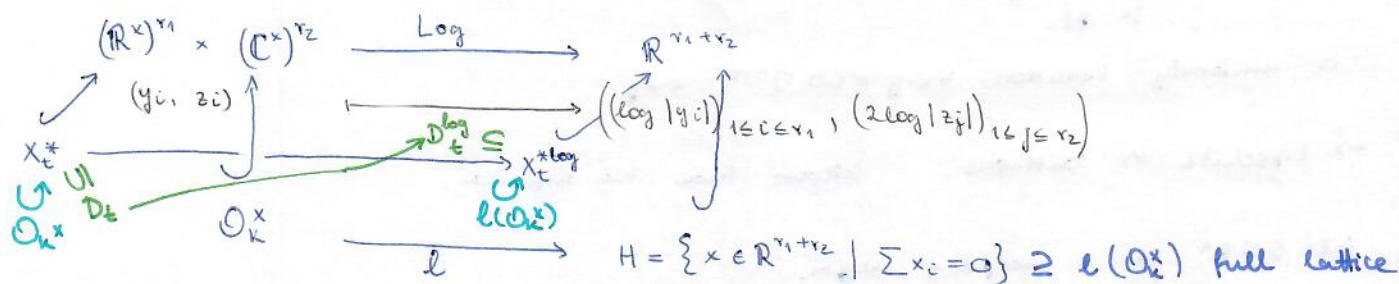 (ℝ^×)^{r_1} × (ℂ^×)^{r_2} Log ℝ^{r_1+r_2}
(y_i, z_i) ((log |y_i|)_{1≤i≤r_1}, (2log |z_j|)_{1≤j≤r_2})
X_t^* D_t^{log} ⊆ X_t^{*log}
∪I D_t
O_K^× O_K^× l(O_K^×)
l H = {x ∈ ℝ^{r_1+r_2} | ∑x_i = 0} ⊇ l(O_K^×) full lattice